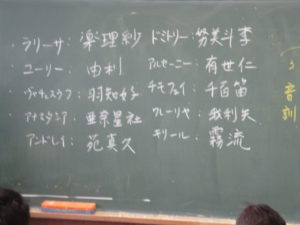 ・ラリーサ：楽理紗
・ユーリー：由利
・ヴャチェスラフ：羽知好
・アナスタシア：亜奈星社
・アンドレイ：苑真久
ドミトリー：努美斗李
アルセーニー：有世仁
チモフェイ：千百笛
ワレーリヤ：我利矢
キリール：霧流
音
訓